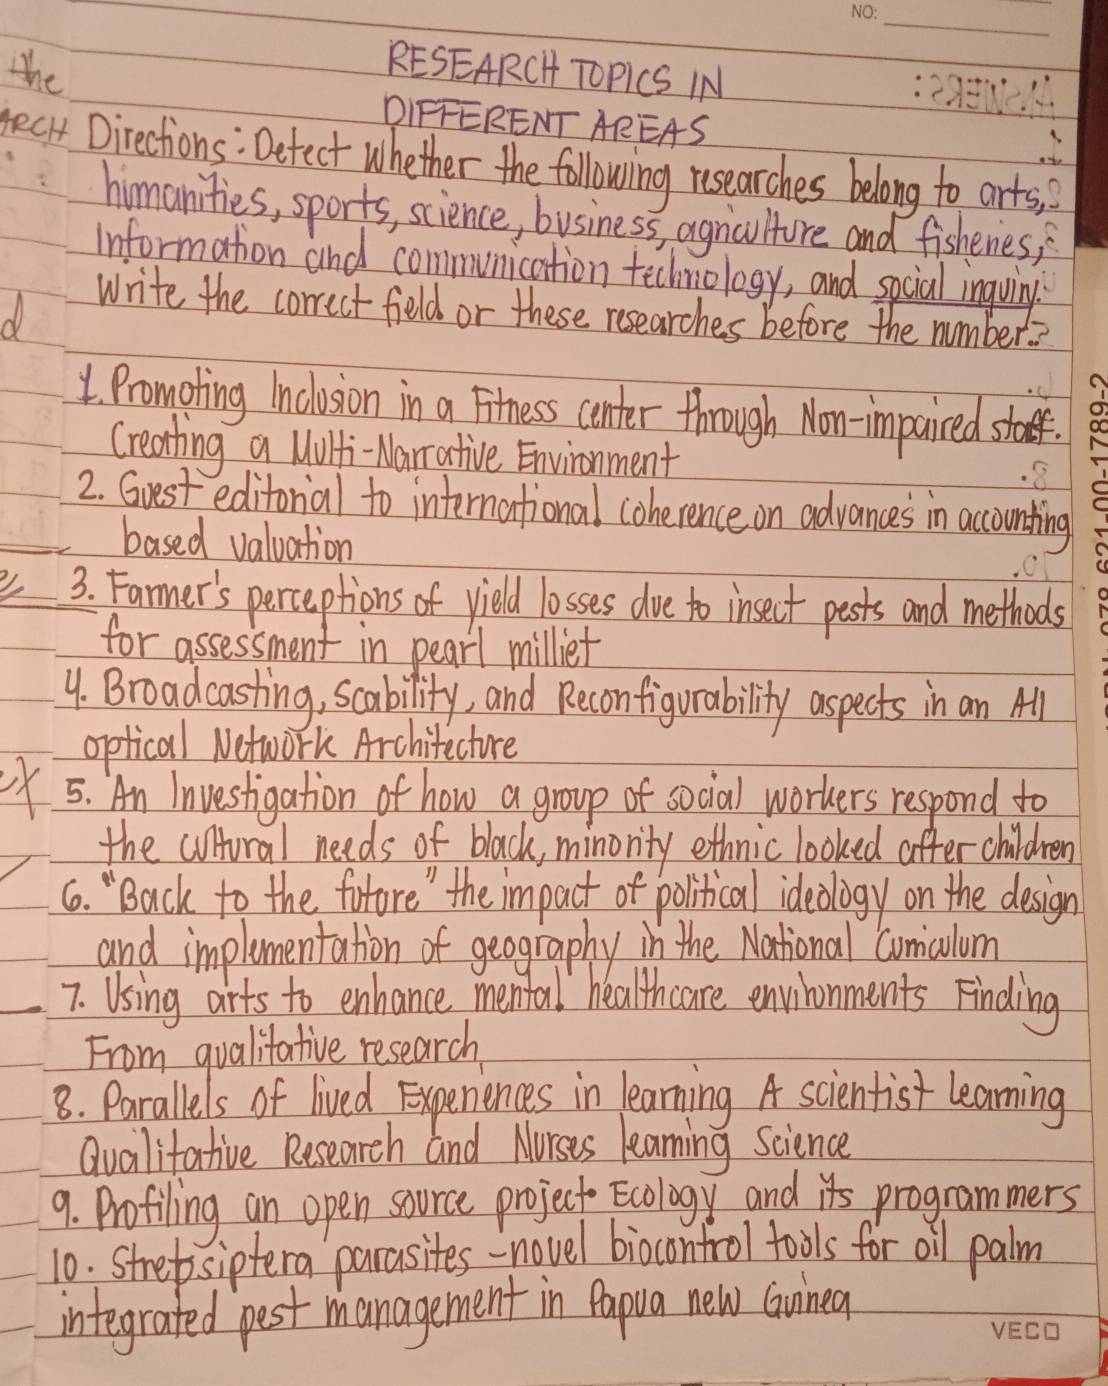 NO:
RESEARCH TOPICS IN
DIFFERENT AREAS
the
ARCH
Directions: Detect whether the following researches belong to arts,
himanities, sports, science, business, agriculture and fisheries,
Information and communication technology, and social inquiry.
Write the correct field or these researches before the number.
d
1. Promoting Inclusion in a Fitness center through Non-impaired staff.
Creating a Multi-Narrative Environment
2. Guest editorial to international coherence on advances in accounting
based valuation
3. Farmer's perceptions of yield losses due to insect pests and methods
for assessment in pearl milliet
4. Broadcasting, scability, and Reconfigurability aspects in an All
optical Network Architecture
ex
5. An Investigation of how a group of social workers respond to
the cultural needs of black, minority ethnic looked after children
6. "Back to the future" the impact of political ideology on the design
and implementation of geography in the National Curriculum
7. Using arts to enhance mental healthcare environments Finding
From qualitative research
8. Parallels of lived Experiences in learning A scientist Learning
Qualitative Research and Nurses learning Science
9. Profiling an open source project Ecology and its programmers
10. Strepsiptera parasites - novel biocontrol tools for oil palm
integrated pest management in Papua new Guinea
VECO
621-00-1789-2